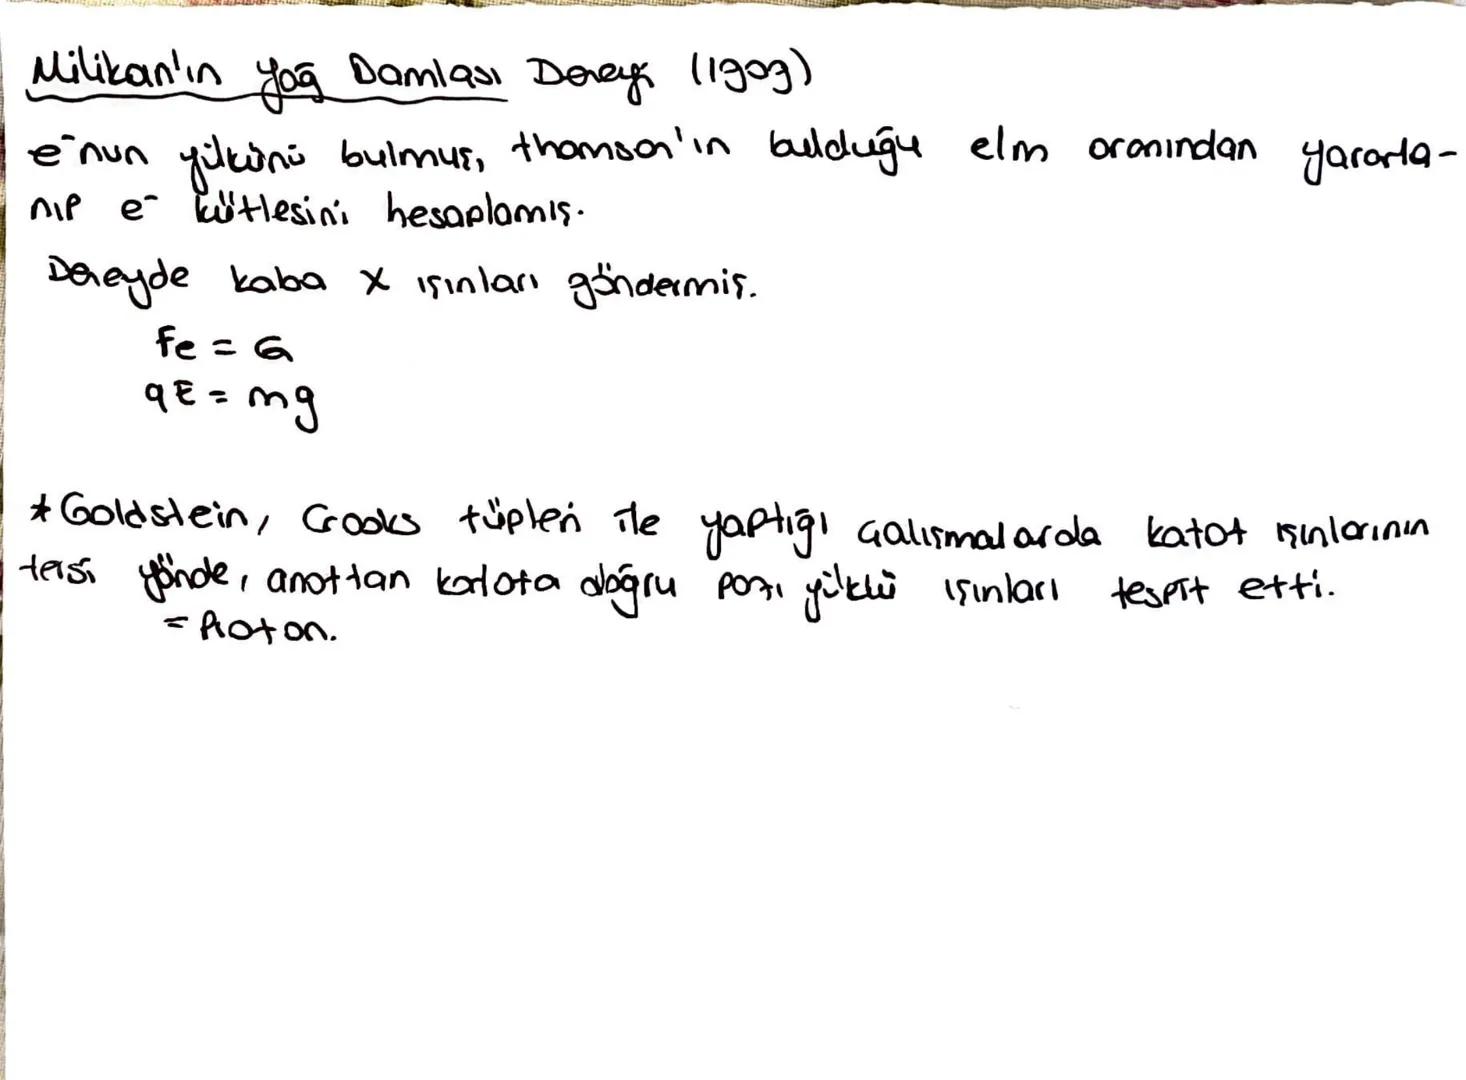 Milikan'ın Yağ Damlası Deneyi (1909)
e⁻nun yükünü bulmuş, thomson'ın bulduğu e/m oranından yararla-
nıp e⁻ kütlesini hesaplamış.
Deneyde kaba X ışınları göndermiş.
Fe = G
qE = mg
* Goldstein, Crooks tüpleri ile yaptığı çalışmalarda katot ışınlarının
tersi yönde, anottan katota doğru pozi yüklü ışınları tespit etti.
= Proton.